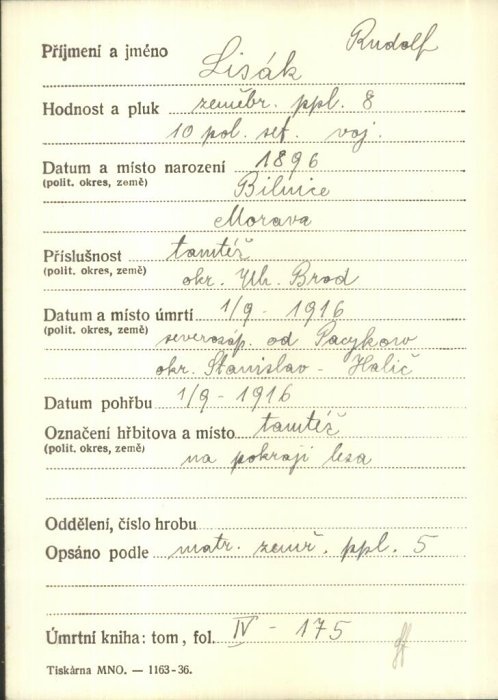 Příjmení a jméno Lisák Rudolf
Hodnost a pluk zeměbr. ppl. 8
10 pol. set. voj.
Datum a místo narození 1896
(polit. okres, země) Bilnice
Morava
Příslušnost tamtéž
(polit. okres, země) okr. Uh. Brod
Datum a místo úmrtí 1/9 - 1916
(polit. okres, země) severozáp. od Pacykow
okr. Stanislav - Halič
Datum pohřbu 1/9 - 1916
Označení hřbitova a místo tamtéž
(polit. okres, země) na pokraji lesa
Oddělení, číslo hrobu
Opsáno podle matr. zemř. ppl. 5
Úmrtní kniha: tom, fol. IV - 175
Tiskárna MNO. — 1163-36.